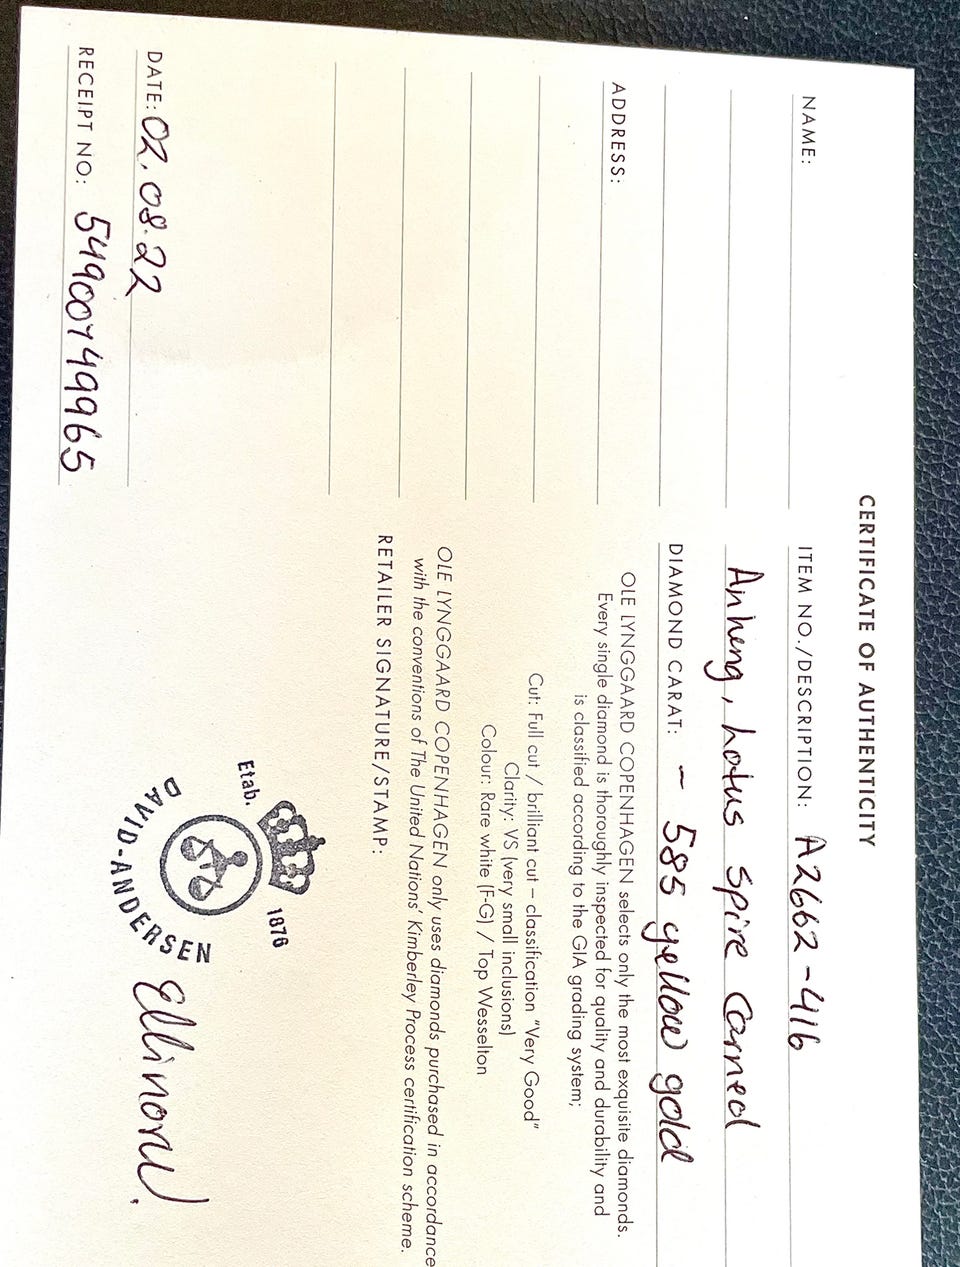 CERTIFICATE OF AUTHENTICITY
NAME:
ADDRESS:
DATE: 02.08.22
RECEIPT NO: 5490074 9965
ITEM NO./DESCRIPTION: A2662-416
Anheng, Lotus spire Carneol
DIAMOND CARAT: - 585 yellow gold
OLE LYNGGAARD COPENHAGEN selects only the most exquisite diamonds.
Every single diamond is thoroughly inspected for quality and durability and
is classified according to the GIA grading system;
Cut: Full cut / brilliant cut – classification "Very Good"
Clarity: VS (very small inclusions)
Colour: Rare white (F-G) / Top Wesselton
OLE LYNGGAARD COPENHAGEN only uses diamonds purchased in accordance
with the conventions of The United Nations' Kimberley Process certification scheme.
RETAILER SIGNATURE/STAMP:
Etab. 1876
DAVID-ANDERSEN